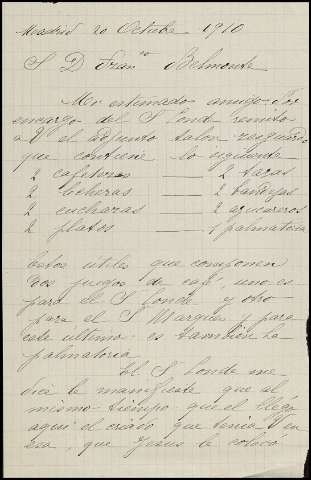 Madrid 20 Octubre 1910
S D Franco Belmonte
Mi estimado amigo: Por
encargo del S Conde remito
a V el adjunto talon resguardo
que contiene lo siguiente
2 cafeteras — 2 tazas
2 lecheras — 2 bandejas
2 cucharas — 2 azucareros
2 platos — 1 palmatoria
Estos útiles que componen
dos juegos de café, uno es
para el S Conde y otro
para el S Marques y para
este ultimo es tambien la
palmatoria
El S Conde me
dice le manifieste que al
mismo tiempo que el llegó
aqui el criado que tenia V en
esa, que Jesus le colocó